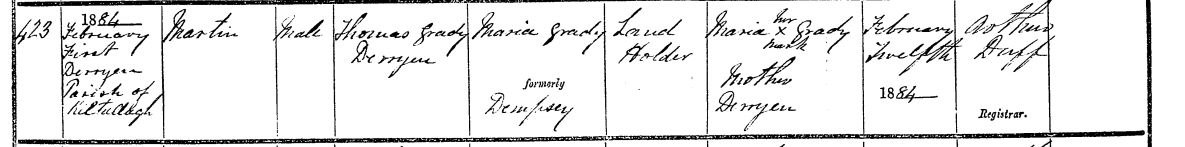 423
1884
February
First
Derryen
Parish of
Kiltullagh
Martin
Male
Thomas Grady
Derryen
Maria Grady
formerly
Dempsey
Land
Holder
her
Maria x Grady
mark
Mother
Derryen
February
Twelfth
1884
Arthur
Duff
Registrar.